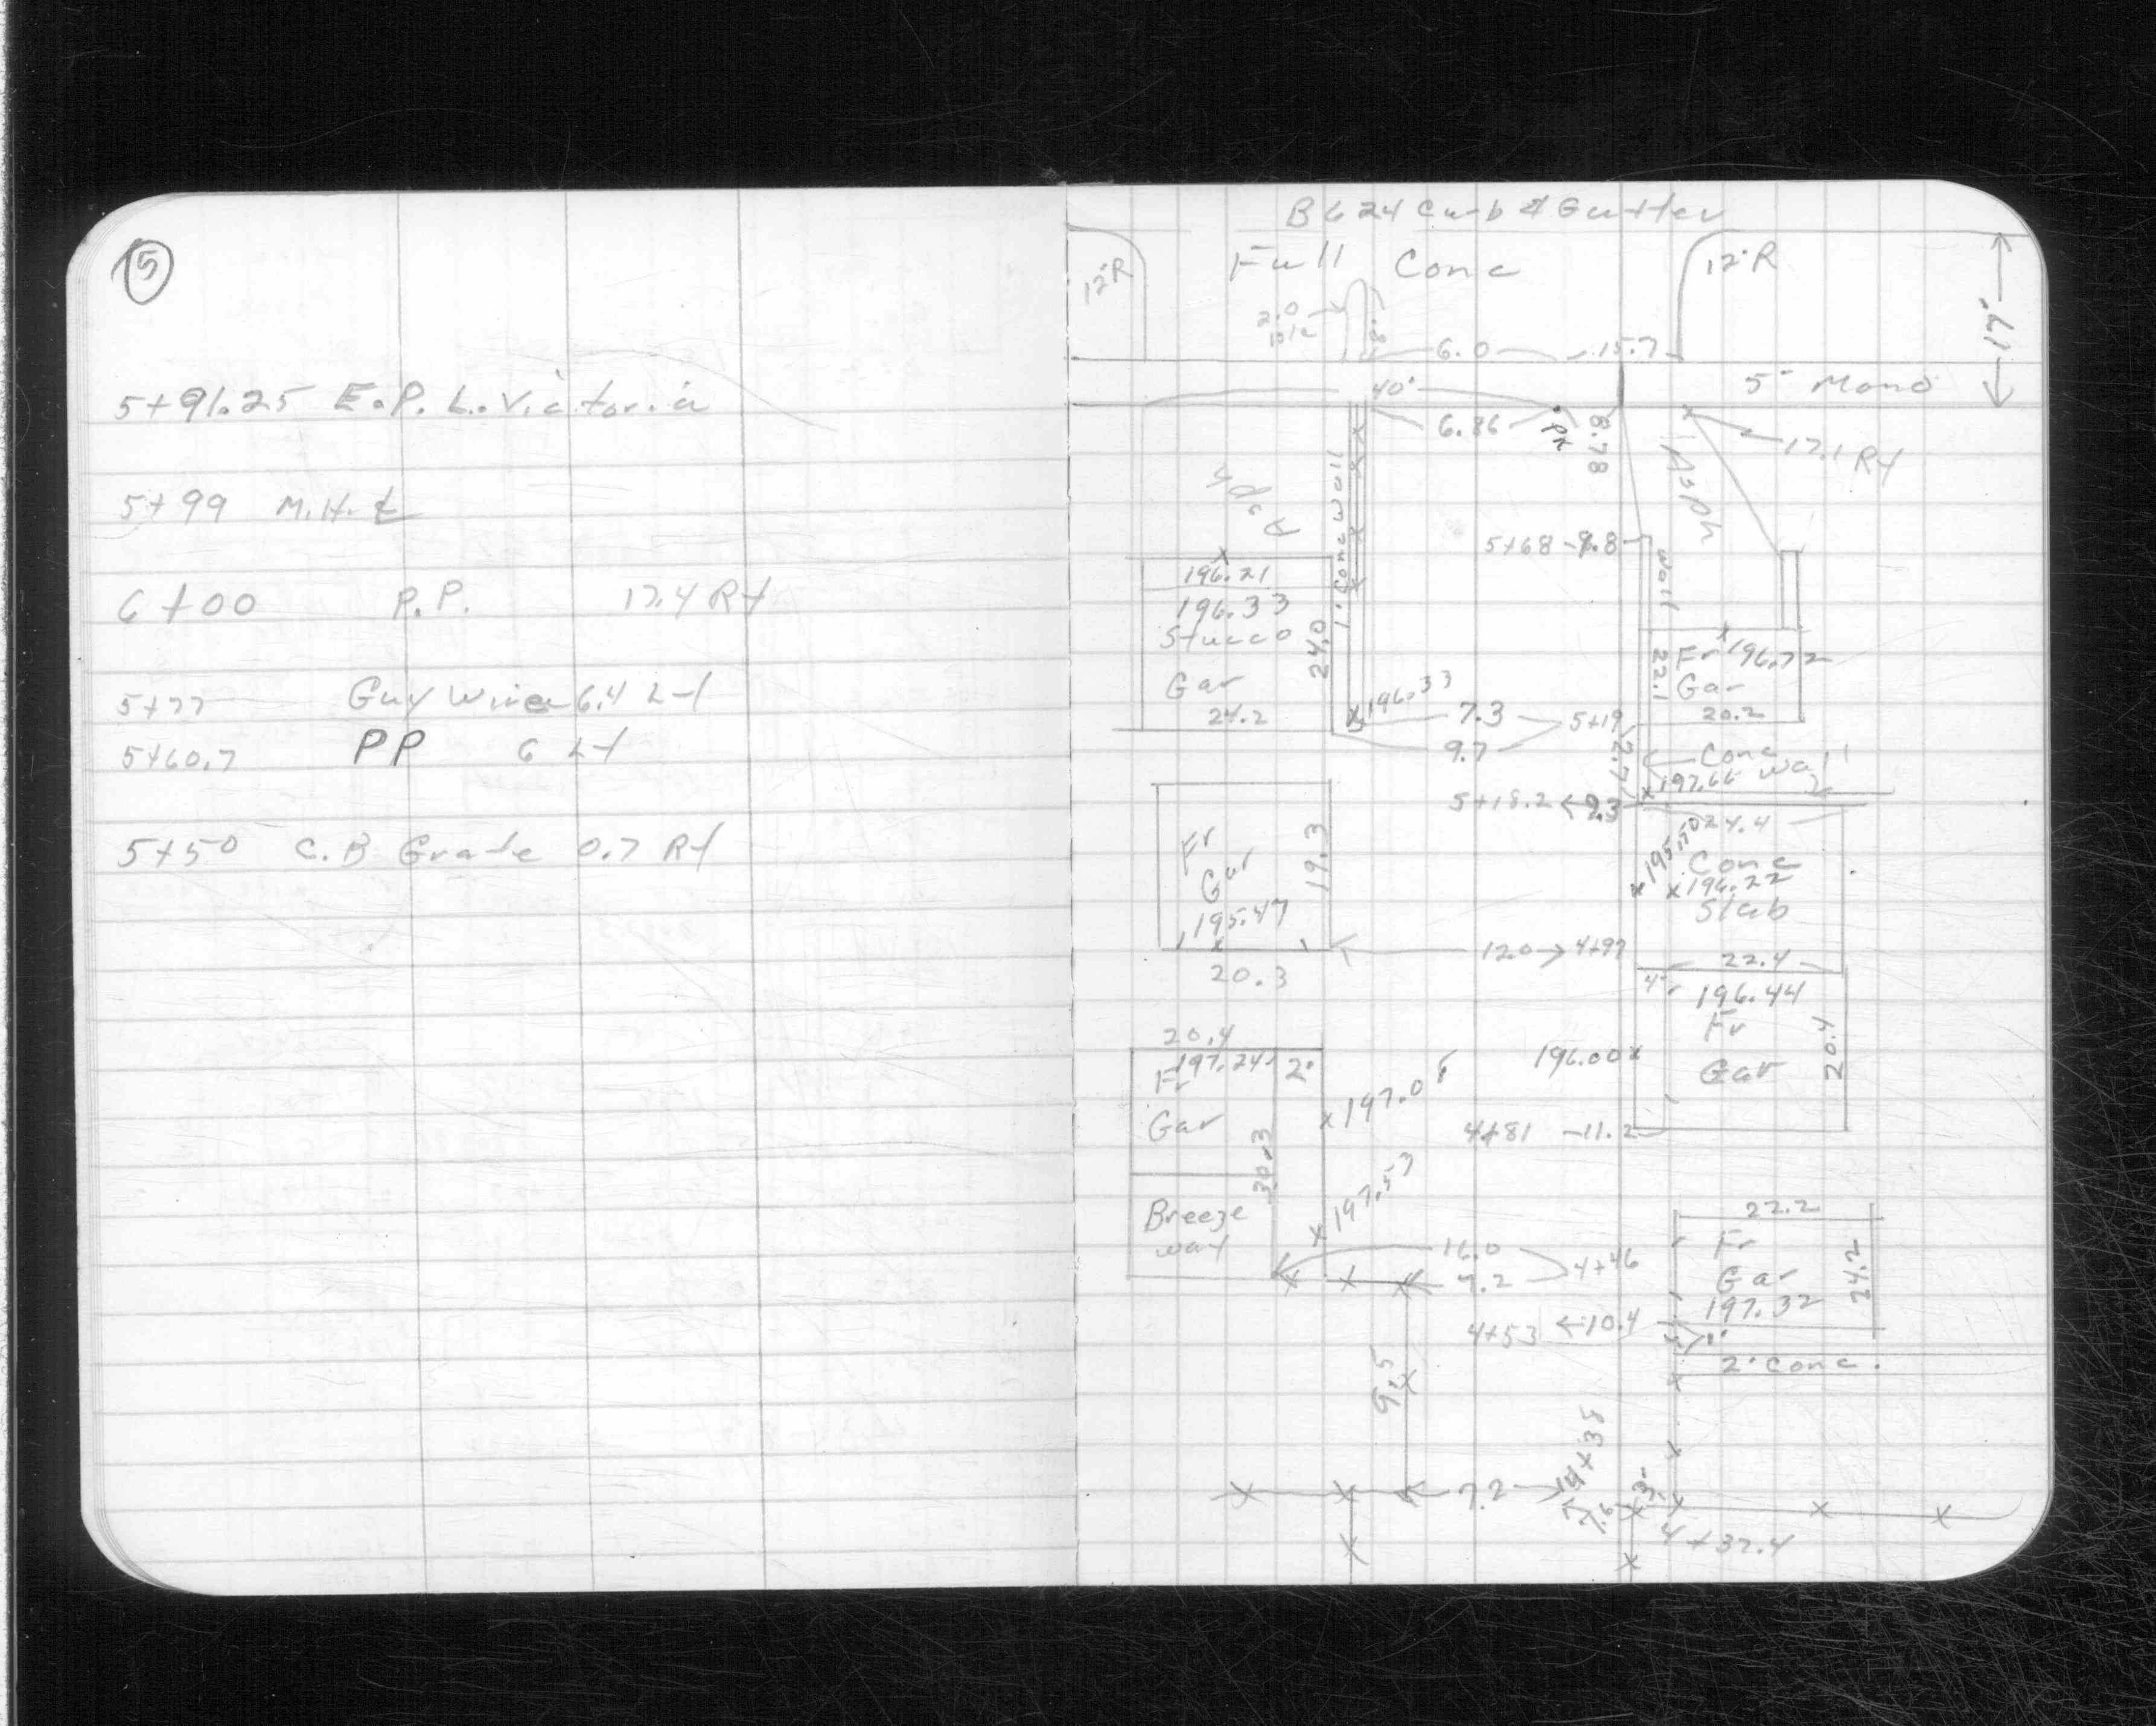 5
5+91.25 E.P. L. Victoria
5+99 M.H. ℄
6+00 P.P. 17.4 Rt
5+77 Guy Wire 6.4 Lt
5+60.7 PP 6 Lt
5+50 C.B Grate 0.7 Rt
B624 Curb & Gutter
12'R Full Conc 12'R
17'
2.0
6.0 15.7
40' 5" Mono
6.86 PK 8.78 17.1 Rt
Asph Asph
1' Conc Wall
5+68 - 9.8 Wall
196.21
196.33
Stucco
Gar
24.2
24.0
196.33
7.3 5+19
9.7
22.1
Fr 196.72
Gar
20.2
2.7
Conc
197.66 Wall
5+18.2 9.3
24.4
Fr
Gar
195.47
19.3
20.3
195.50
Conc
196.22
Slab
12.0 4+97
22.4
4'
196.44
Fr
Gar
20.4
20.4
197.24 2'
Fr
Gar
30.3
Breeze
way
197.08
197.53
196.00
4+81 - 11.2
16.0
7.2 4+46
22.2
Fr
Gar
197.32
24.2
4+53 10.4
1'
2' Conc.
9.5
7.2 4+38
7.6 3'
4+37.4